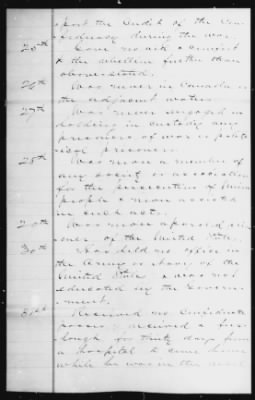 port the Credit of the Con-
federacy during the war.
25th Gave no aid & comfort
to the rebellion further than
above stated.
26th Was never in Canada or
the adjacent waters.
27th Was never engaged in
holding in custody any
prisoners of war or polit-
ical prisoners.
28th Was never a member of
any society or association
for the persecution of Union
people & never assisted
in such acts.
29th Was never a paroled pris-
oner of the United States.
30th Has held no office in
the Army or Navy of the
United States & was not
educated by the Govern-
ment.
31st Received no Confederate
passes, received a fur-
lough for thirty days from
a hospital to come home
while he was in the